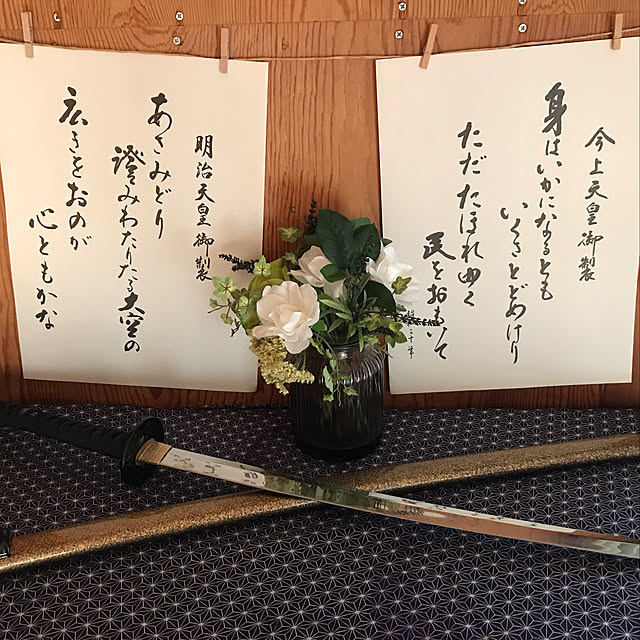 今上天皇御製
身はいかになるとも
いくさとどめけり
ただたほれゆく
民をおもいて
明治天皇御製
あさみどり
澄みわたりたる大空の
広きをおのが
心ともかな